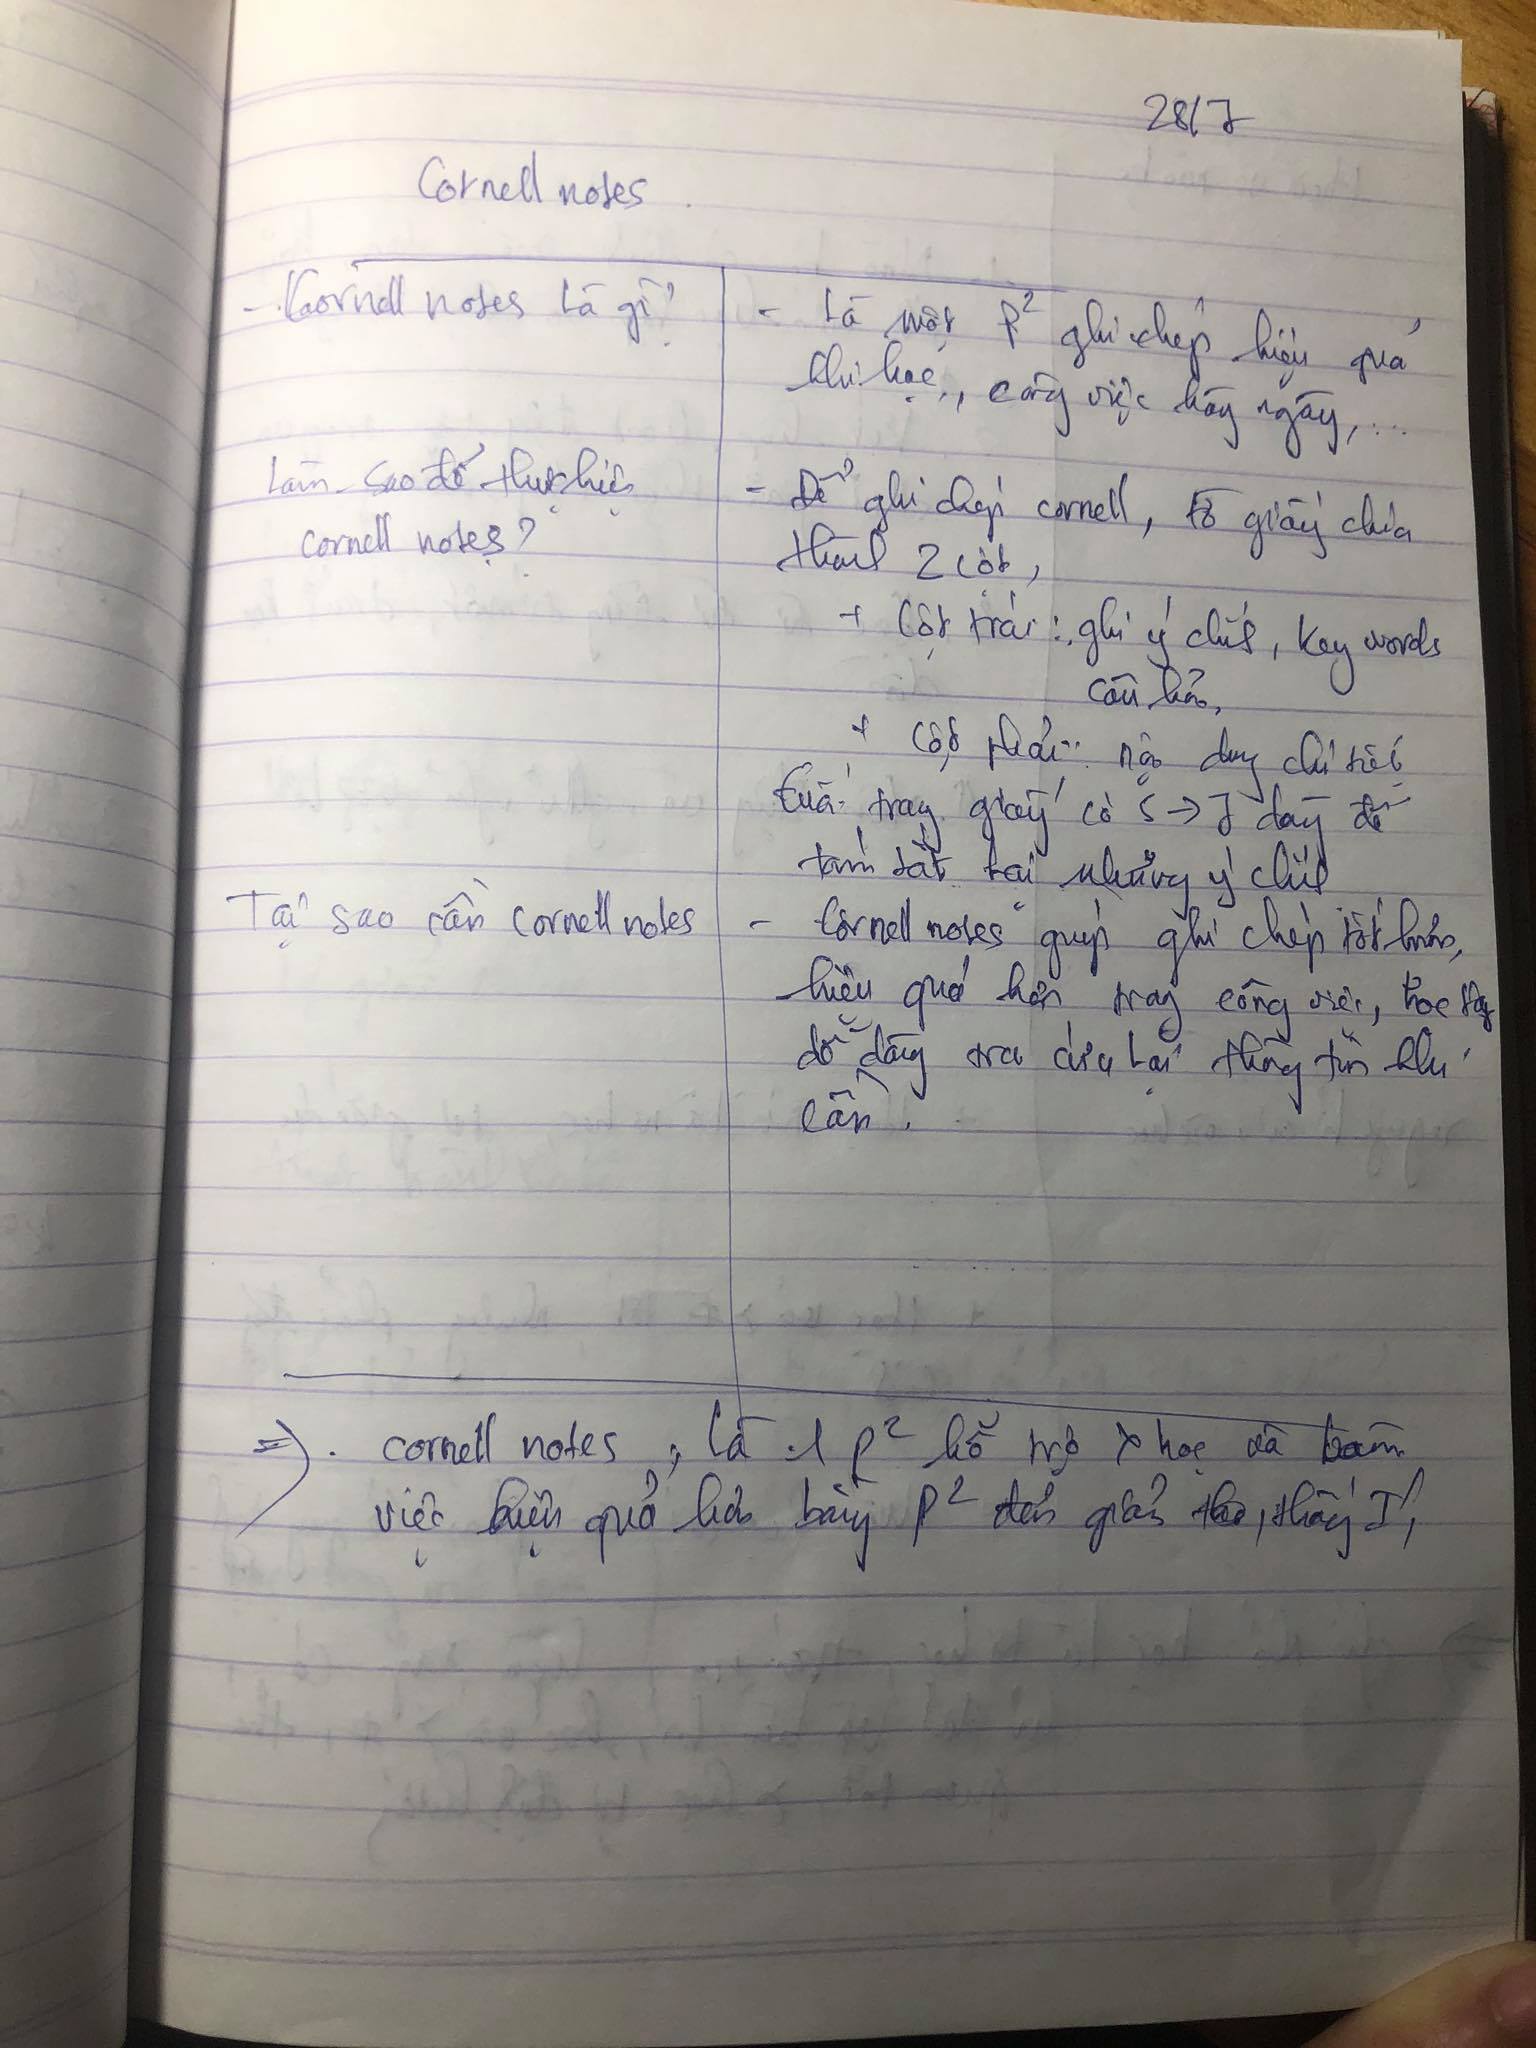 28/7
Cornell notes
- Cornell notes là gì?
- Là một P² ghi chép hiệu quả
khi học, công việc hàng ngày,...
Làm sao để thực hiện
cornell notes?
- Để ghi chép cornell, tờ giấy chia
thành 2 cột,
+ Cột trái: ghi ý chính, key words
câu hỏi,
+ Cột phải: nội dung chi tiết
Cuối trang giấy có 5 → 7 dòng để
tóm tắt lại những ý chính
Tại sao cần cornell notes
- Cornell notes giúp ghi chép tốt hơn,
hiệu quả hơn trong công việc, học tập
dễ dàng tra cứu lại thông tin khi
cần.
=> cornell notes, là 1 P² hỗ trợ học và làm
việc hiệu quả hơn bằng P² đơn giản